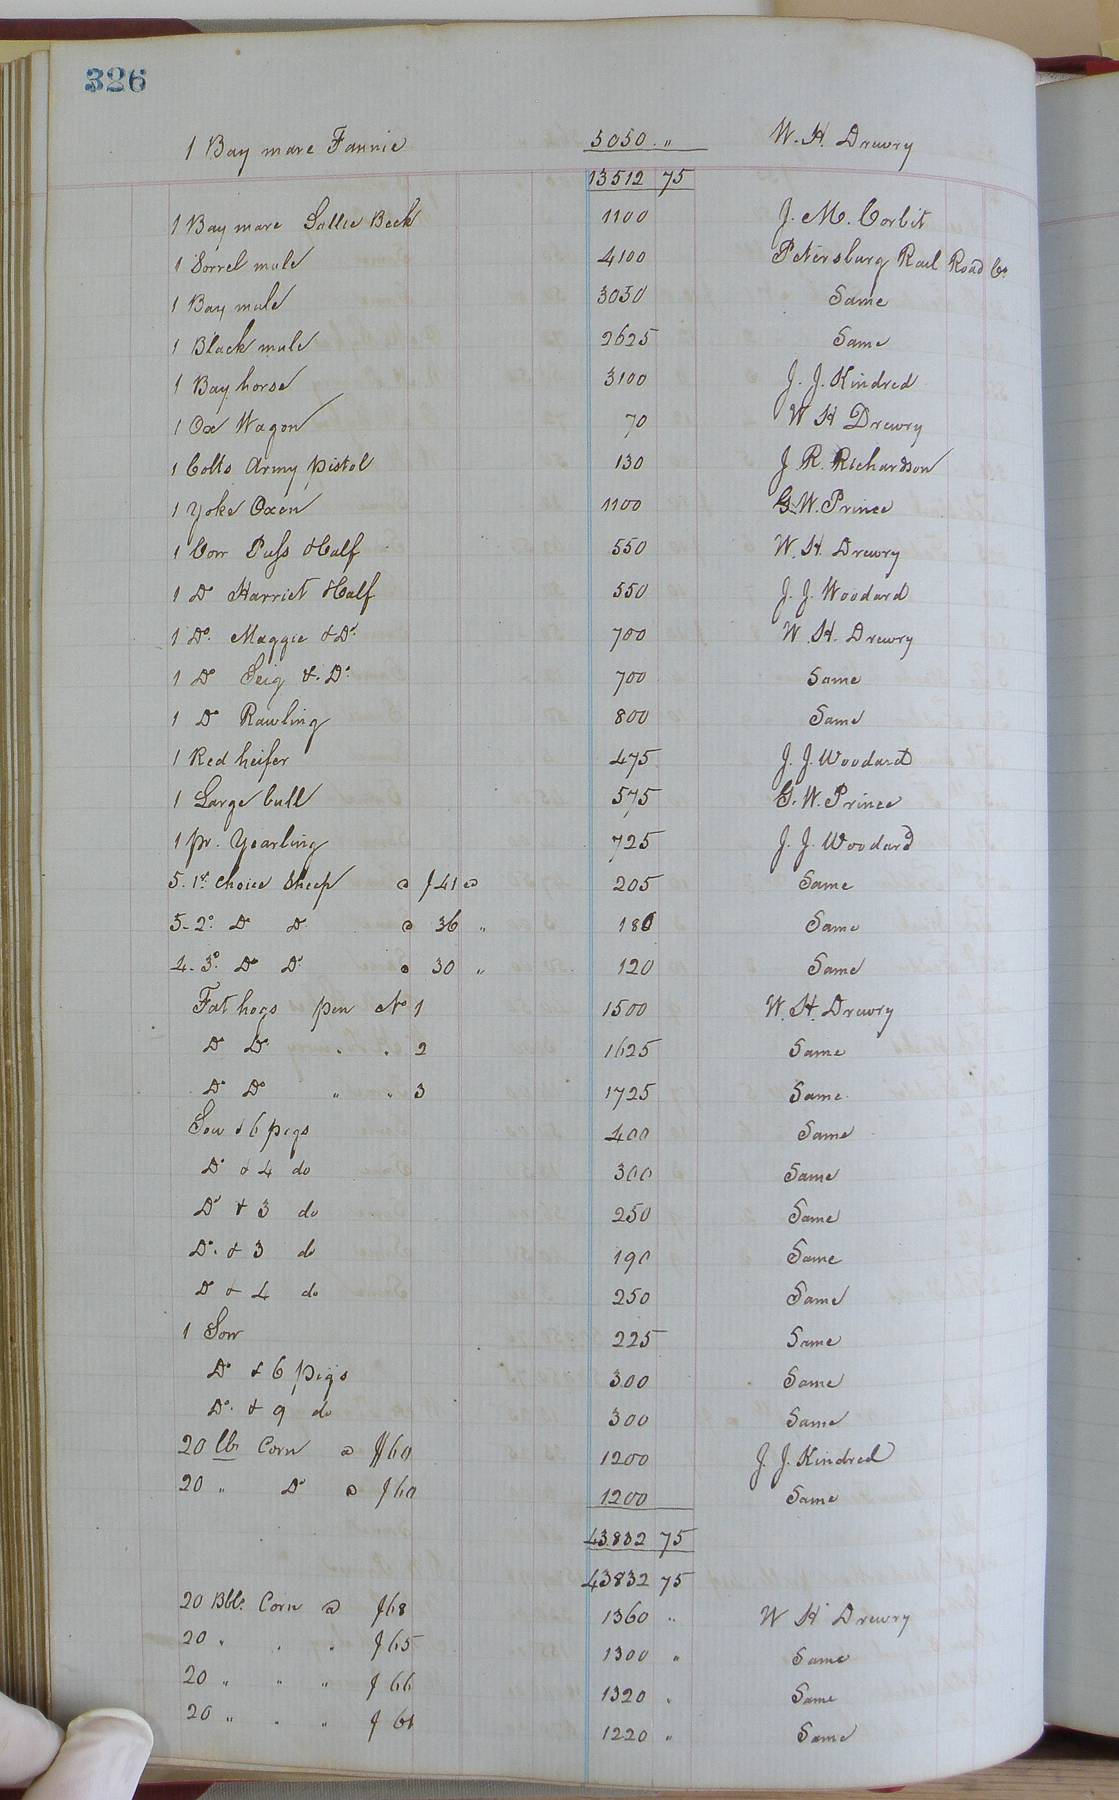 326
1 Bay mare Fannie 5050 . " W. H. Drewry
13512 75
1 Bay mare Sallie Beck 1100 J. M. Corbit
1 Sorrel mule 4100 Petersburg Rail Road Co
1 Bay mule 3050 Same
1 Black mule 2625 Same
1 Bay horse 3100 J. J. Kindred
1 Ox Wagon 70 W H Drewry
1 Colts Army pistol 130 J R. Richardson
1 Yoke Oxen 1100 G. W. Prince
1 Cow Puss & Calf 550 W. H. Drewry
1 Do Harriet & Calf 550 J. J. Woodard
1 Do. Maggie & Do. 700 W. H. Drewry
1 Do & Do. 700 Same
1 Do Rawling 800 Same
1 Red heifer 475 J. J. Woodard
1 Large bull 575 G. W. Prince
1 pr. Yearling 725 J. J. Woodard
5. 1st choice Sheep @ $41 205 Same
5- 2o. Do Do @ 36 " 180 Same
4- 3o. Do Do @ 30 " 120 Same
Fat hogs pen No 1 1500 W. H. Drewry
Do Do . . 2 1625 Same
Do Do " " 3 1725 Same
Sow & 6 pigs 400 Same
Do & 4 do 300 Same
Do & 3 do 250 Same
Do. & 3 do 190 Same
Do & 4 do 250 Same
1 Sow 225 Same
Do & 6 pigs 300 Same
Do. & 9 do 300 Same
20 bbs Corn @ $60 1200 J. J. Kindred
20 " Do @ $60 1200 Same
43.832 75
43832 75
20 Bbls. Corn @ $68 1360 " W H Drewry
20 " . . $65 1300 " Same
20 " " " $66 1320 " Same
20 " . " $61 1220 " Same